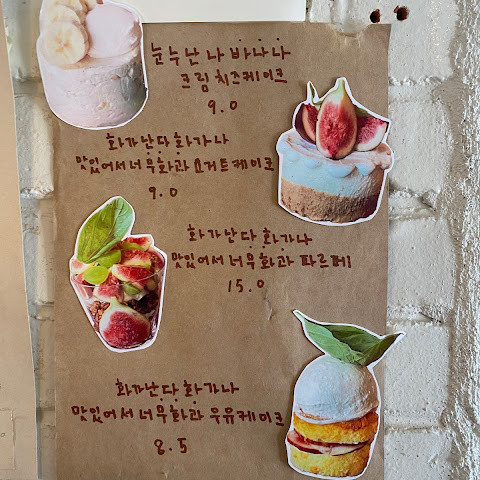 눈누난나 바나나
크림치즈케이크
9.0
화가난다 화가나
맛있어서 너무화과 요거트케이크
9.0
화가난다 화가나
맛있어서 너무화과 파르페
15.0
화가난다 화가나
맛있어서 너무화과 우유케이크
8.5